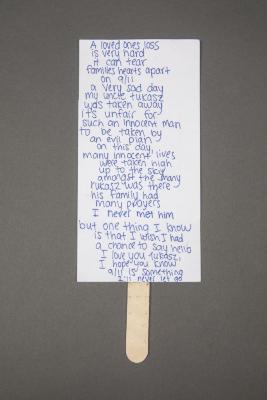 A loved ones loss
is very hard
it can tear
families hearts apart
on 9/11
a very sad day
my uncle Łukasz
was taken away
it's unfair for
such an innocent man
to be taken by
an evil plan
on this day,
many innocent lives
were taken high
up to the sky
amongst the many
Łukasz was there
his family had
many prayers
I never met him
but one thing I know
is that I wish I had
a chance to say hello
I love you Łukasz,
I hope you know
9/11 is something
I'll never let go